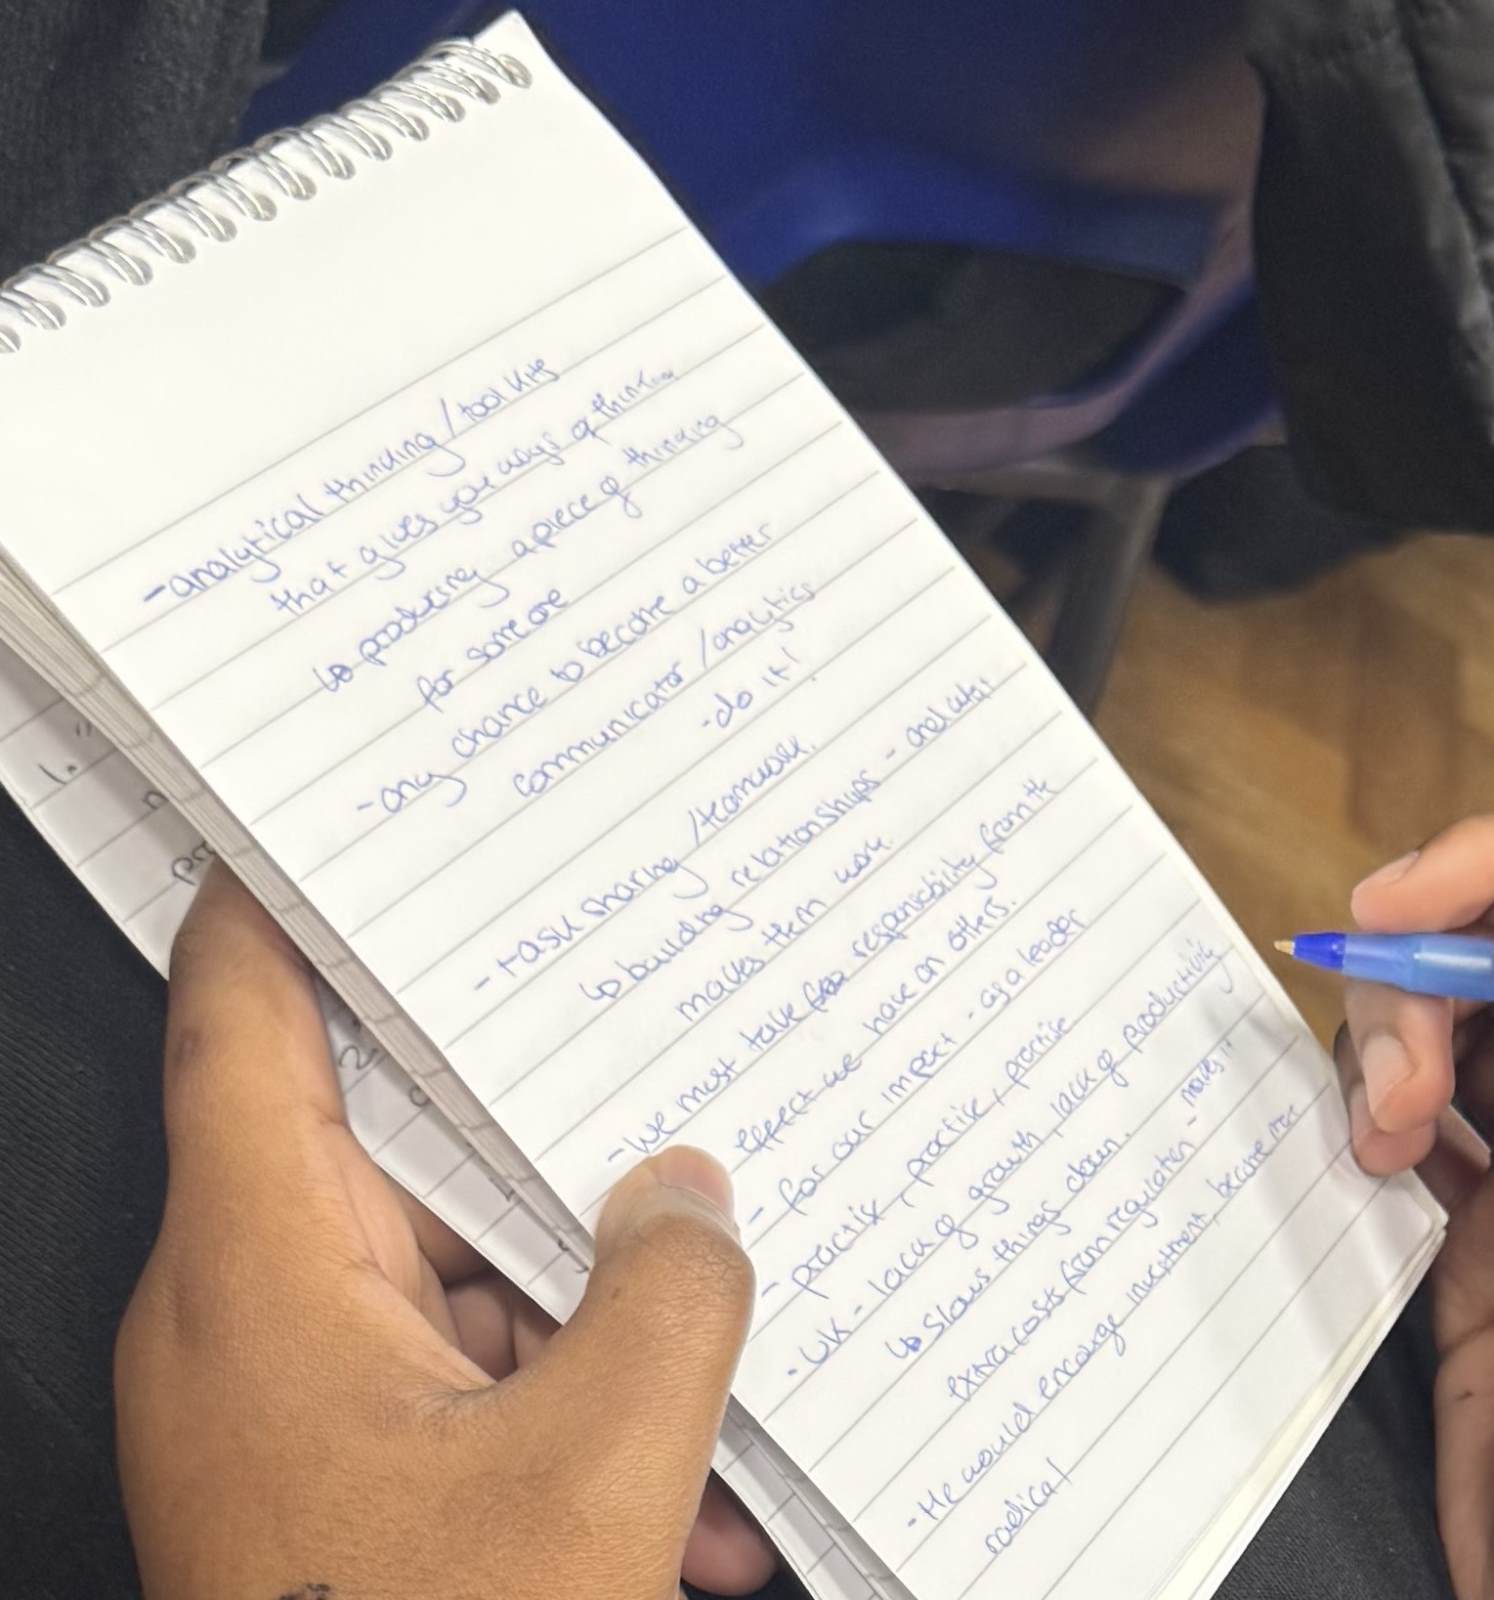 - analytical thinking / tool kits
that gives you ways of thinking
↳ producing a piece of thinking
for someone
- any chance to become a better
communicator / analytics
- do it!
- task sharing / teamwork.
↳ building relationships - and what
makes them work.
- We must take responsibility from the
effect we have on others.
- for our impact - as a leader
- practise, practise, practise
- UK - lack of growth, lack of productivity
↳ slows things down.
extra costs from regulation - makes it
- He would encourage investment, become more
radical
1.
2.